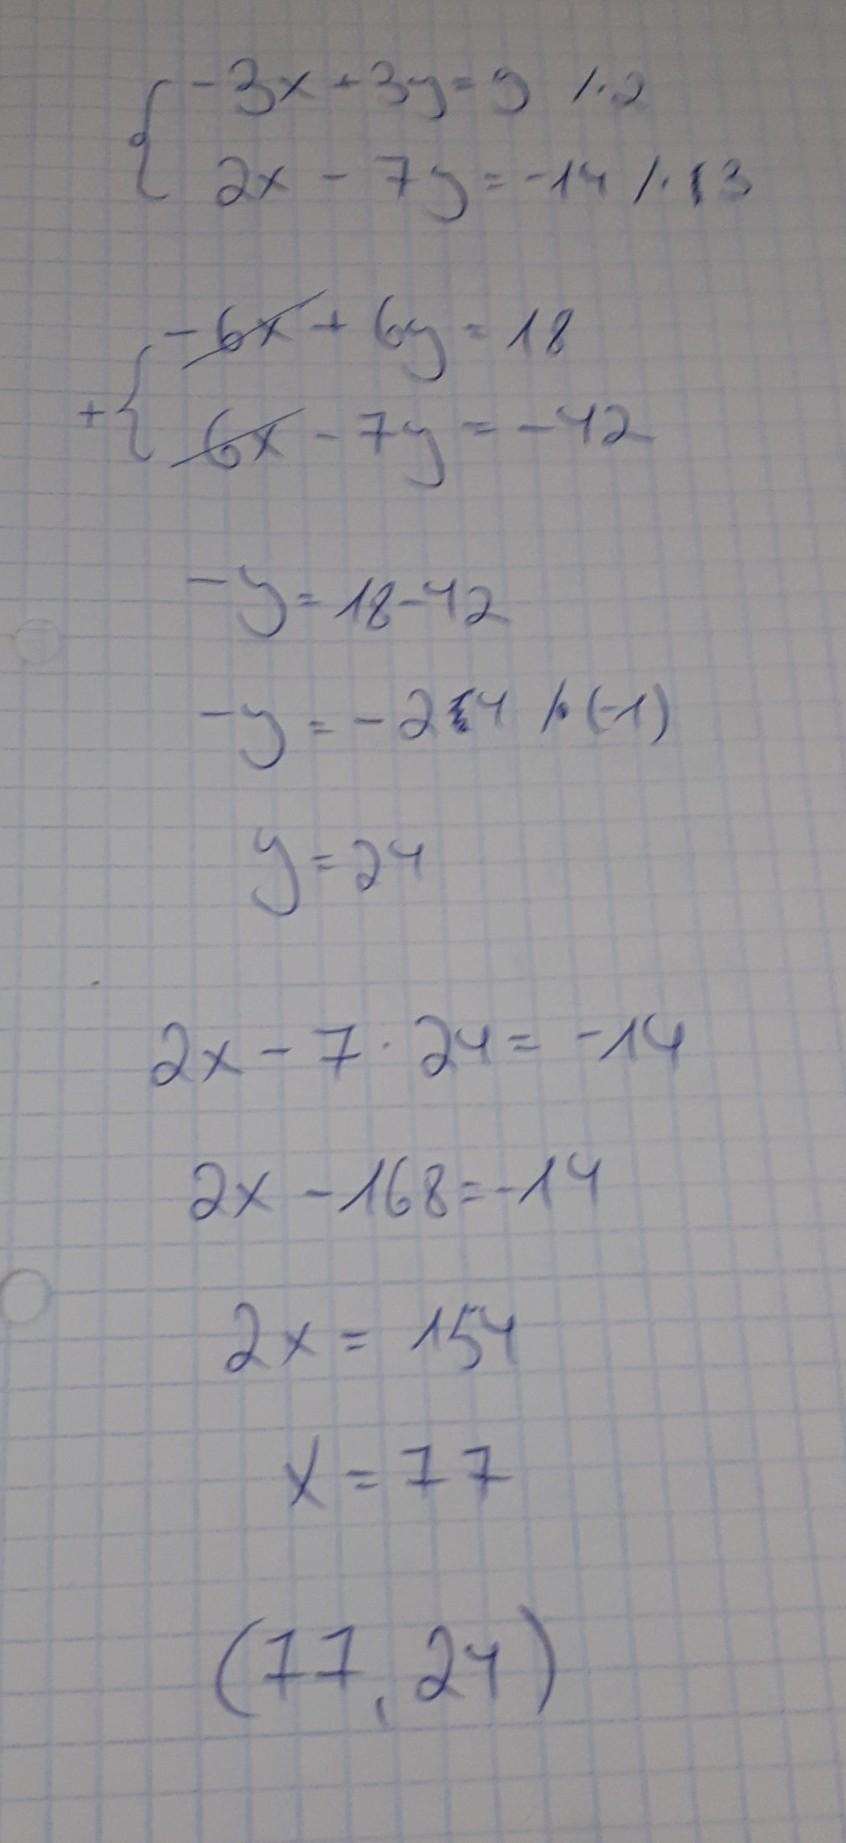 -3x+3y=9 /·2
2x-7y=-14 /·3
-6x+6y=18
+
6x-7y=-42
-y=18-42
-y=-24 /·(-1)
y=24
2x-7·24=-14
2x-168=-14
2x=154
x=77
(77,24)